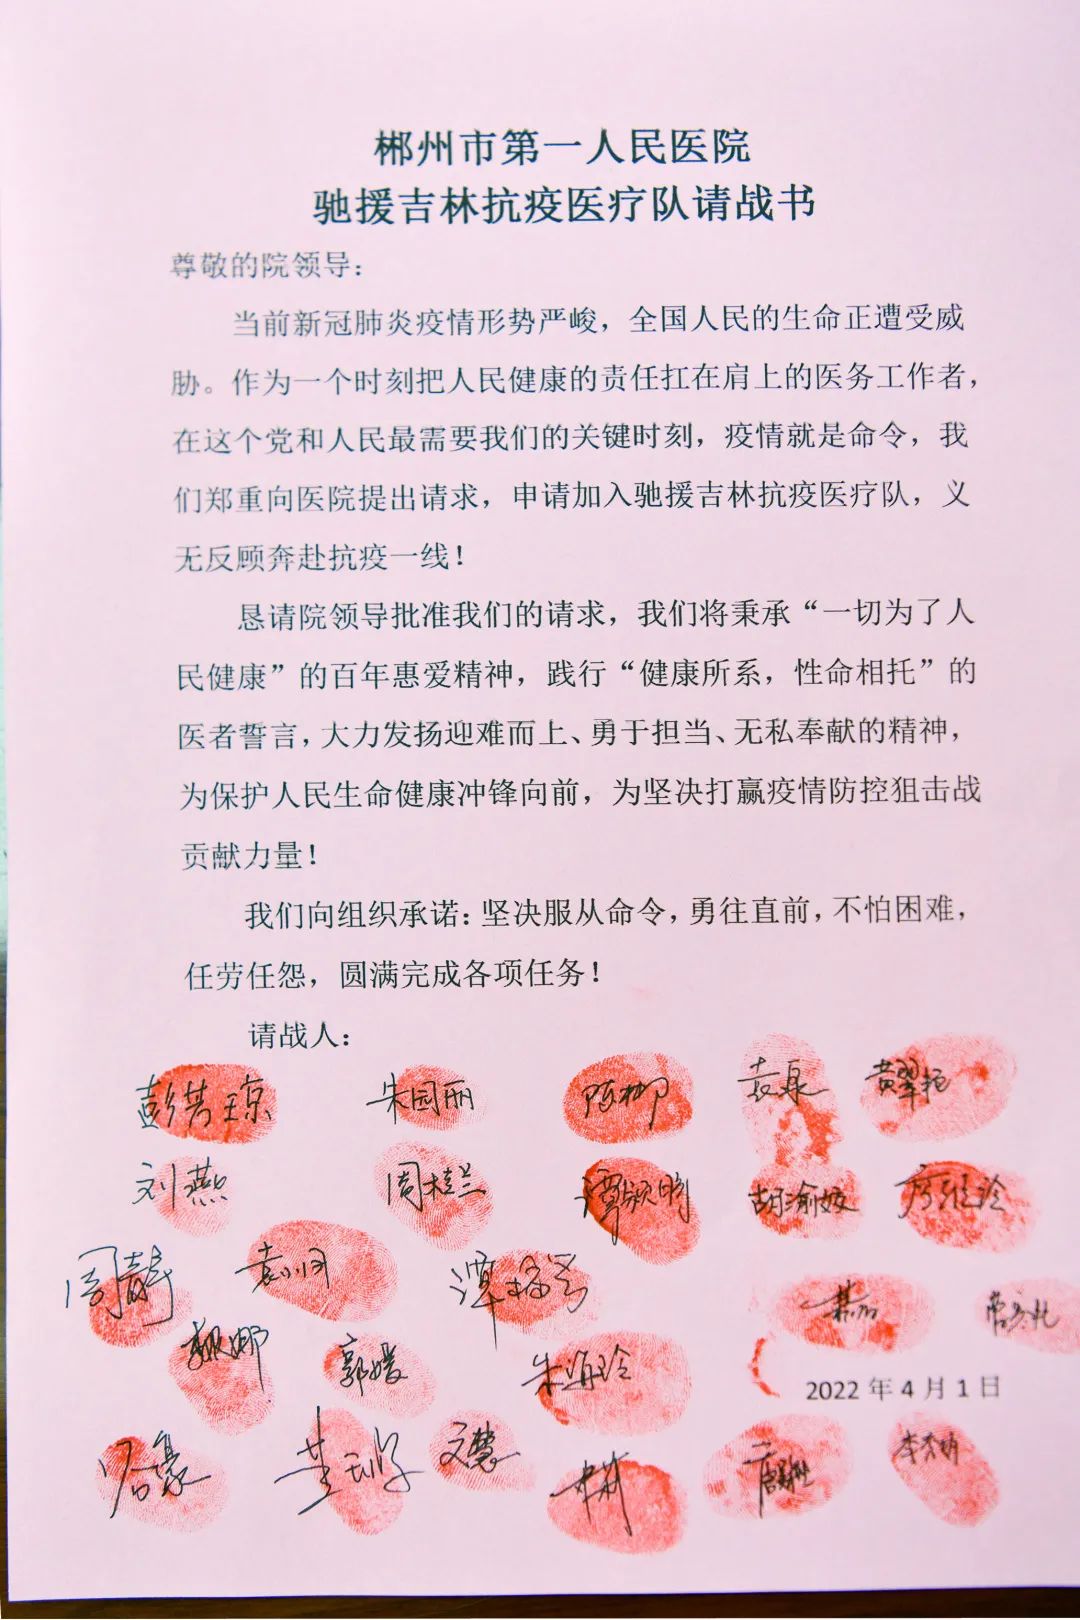 郴州市第一人民医院
驰援吉林抗疫医疗队请战书
尊敬的院领导：
当前新冠肺炎疫情形势严峻，全国人民的生命正遭受威
胁。作为一个时刻把人民健康的责任扛在肩上的医务工作者，
在这个党和人民最需要我们的关键时刻，疫情就是命令，我
们郑重向医院提出请求，申请加入驰援吉林抗疫医疗队，义
无反顾奔赴抗疫一线！
恳请院领导批准我们的请求，我们将秉承“一切为了人
民健康”的百年惠爱精神，践行“健康所系，性命相托”的
医者誓言，大力发扬迎难而上、勇于担当、无私奉献的精神，
为保护人民生命健康冲锋向前，为坚决打赢疫情防控狙击战
贡献力量！
我们向组织承诺：坚决服从命令，勇往直前，不怕困难，
任劳任怨，圆满完成各项任务！
请战人：
朱园丽 陈娜 袁泉 黄翠艳
刘燕 周桂兰
周静
郭媛 朱海玲
2022 年 4 月 1 日
文慧 李秀明